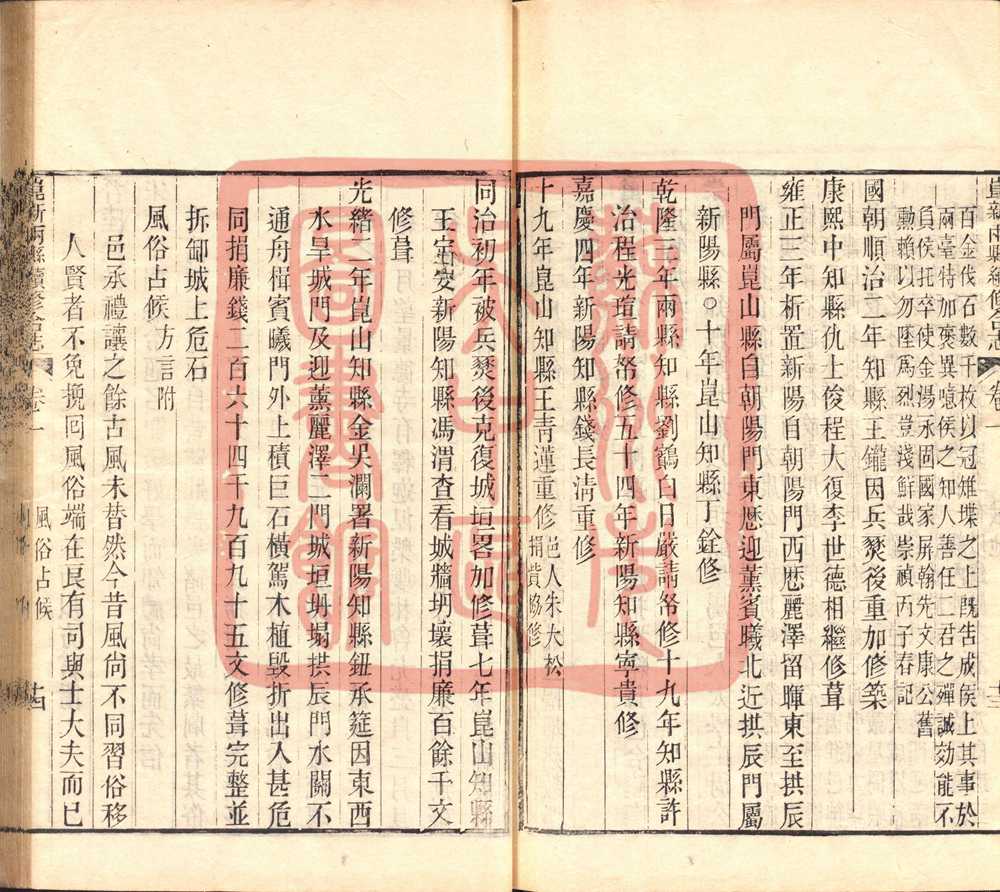 崑新兩縣續修合志 卷一 十三
百金伐石數千枚以冠雉堞之上既告成侯上其事於
兩臺特加褒異噫侯之知人善任二君之殫誠効能不
負侯托卒使金湯永固國家屏翰先文康公舊
勳賴以勿墜爲烈豈淺鮮哉崇禎丙子春記
國朝順治二年知縣王鑨因兵燹後重加修築
康熙中知縣仇士俊程大復李世德相繼修葺
雍正三年析置新陽自朝陽門西歴麗澤留暉東至拱辰
門屬崑山縣自朝陽門東歴迎薰賓曦北近拱辰門屬
新陽縣〇十年崑山知縣丁銓修
乾隆三年兩縣知縣劉鶴白日嚴請帑修十九年知縣許
治程光瑄請帑修五十四年新陽知縣寧貴修
嘉慶四年新陽知縣錢長淸重修
十九年崑山知縣王靑蓮重修邑人朱大松捐貲協修
同治初年被兵燹後克復城垣畧加修葺七年崑山知縣
王定安新陽知縣馮渭查看城牆坍壞捐廉百餘千文
修葺
光緒二年崑山知縣金吳瀾署新陽知縣鈕承筵因東西
水旱城門及迎薰麗澤二門城垣坍塌拱辰門水關不
通舟楫賓曦門外上積巨石橫駕木植毁折出入甚危
同捐廉錢二百六十四千九百九十五文修葺完整並
拆卸城上危石
風俗占候 方言附
邑承禮讓之餘古風未替然今昔風尙不同習俗移
人賢者不免挽囘風俗端在良有司與士大夫而已
崑新兩縣續修合志 卷一 風俗占候 十四